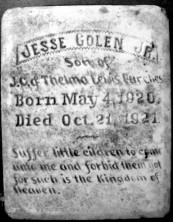 JESSE GOLEN JR.
Son of
J.G.& Thelma Lewis
Born May 4, 1920,
Died Oct. 21, 1921
Suffer little cildren to come
unto me and forbid them not
for such is the Kingdom of
Heaven.